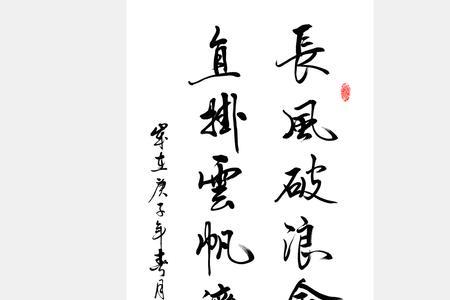 長風破浪會
直掛雲帆濟
歲在庚子年春月